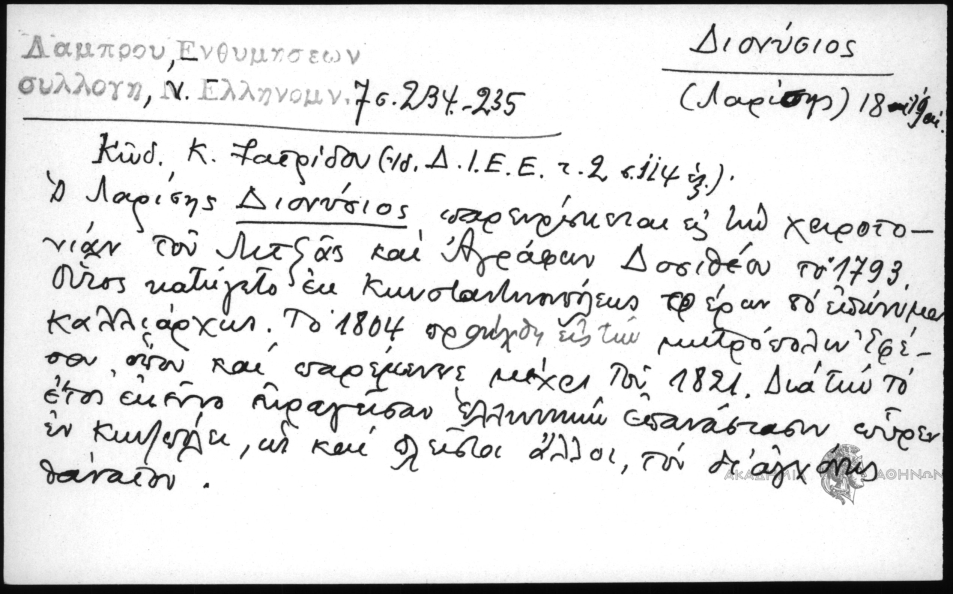 Λαμπρου, Ενθυμησεων
συλλογη, Ν. Ελληνομν. 7 σ. 234-235
Διονύσιος
(Λαρίσης) 18 - 19 αι.
Κώδ. Κ. Ζακρίδου (ιδ. Δ.Ι.Ε.Ε. τ. 2 σ. 114 ἑξ.).
Ὁ Λαρίσης Διονύσιος παρευρίσκεται εἰς τὴν χειροτο-
νίαν τοῦ Λιτζᾶς καὶ Ἀγράφων Δοσιθέου τὸ 1793.
Οὗτος κατήγετο ἐκ Κωνσταντινουπόλεως φέρων τὸ ἐπώνυμον
Καλλιάρχης. Τὸ 1804 προήχθη εἰς τὴν μητρόπολιν Ἐφέ-
σου, ὅπου καὶ παρέμεινε μέχρι τοῦ 1821. Διὰ τὴν τὸ
ἔτος ἐκεῖνο ἐκραγεῖσαν ἑλληνικὴν ἐπανάστασιν εὗρεν
ἐν Κων/πόλει, ὡς καὶ πλεῖστοι ἄλλοι, τὸν δι' ἀγχόνης
θάνατον.
ΑΚΑΔΗΜΙΑ ΑΘΗΝΩΝ